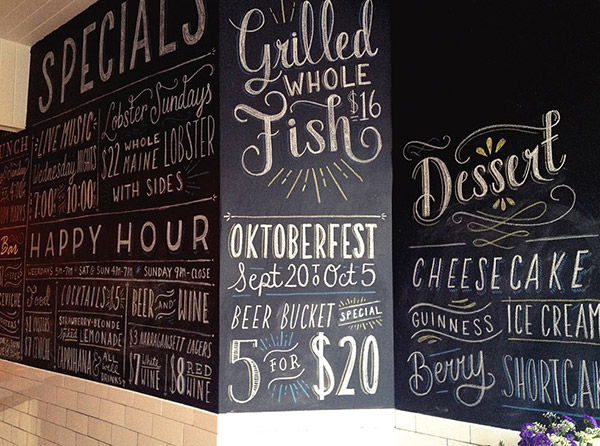 SPECIALS
LIVE MUSIC
Wednesday NIGHTS
7:00 TO 10:00
Lobster Sundays
$22 WHOLE MAINE LOBSTER
WITH SIDES
HAPPY HOUR
SUNDAY 9PM-CLOSE
Food
COCKTAILS $5
STRAWBERRY-BLONDE
LEMONADE
CAIPIRINHA & ALL WELL DRINKS
BEER AND WINE
$3 NARRAGANSETT LAGERS
$7 WHITE WINE
$8 RED WINE
Bar
Grilled
WHOLE
Fish $16
OKTOBERFEST
Sept 20 TO Oct 5
BEER BUCKET SPECIAL
5 FOR $20
Dessert
CHEESECAKE
GUINNESS ICE CREAM
Berry SHORTCAK